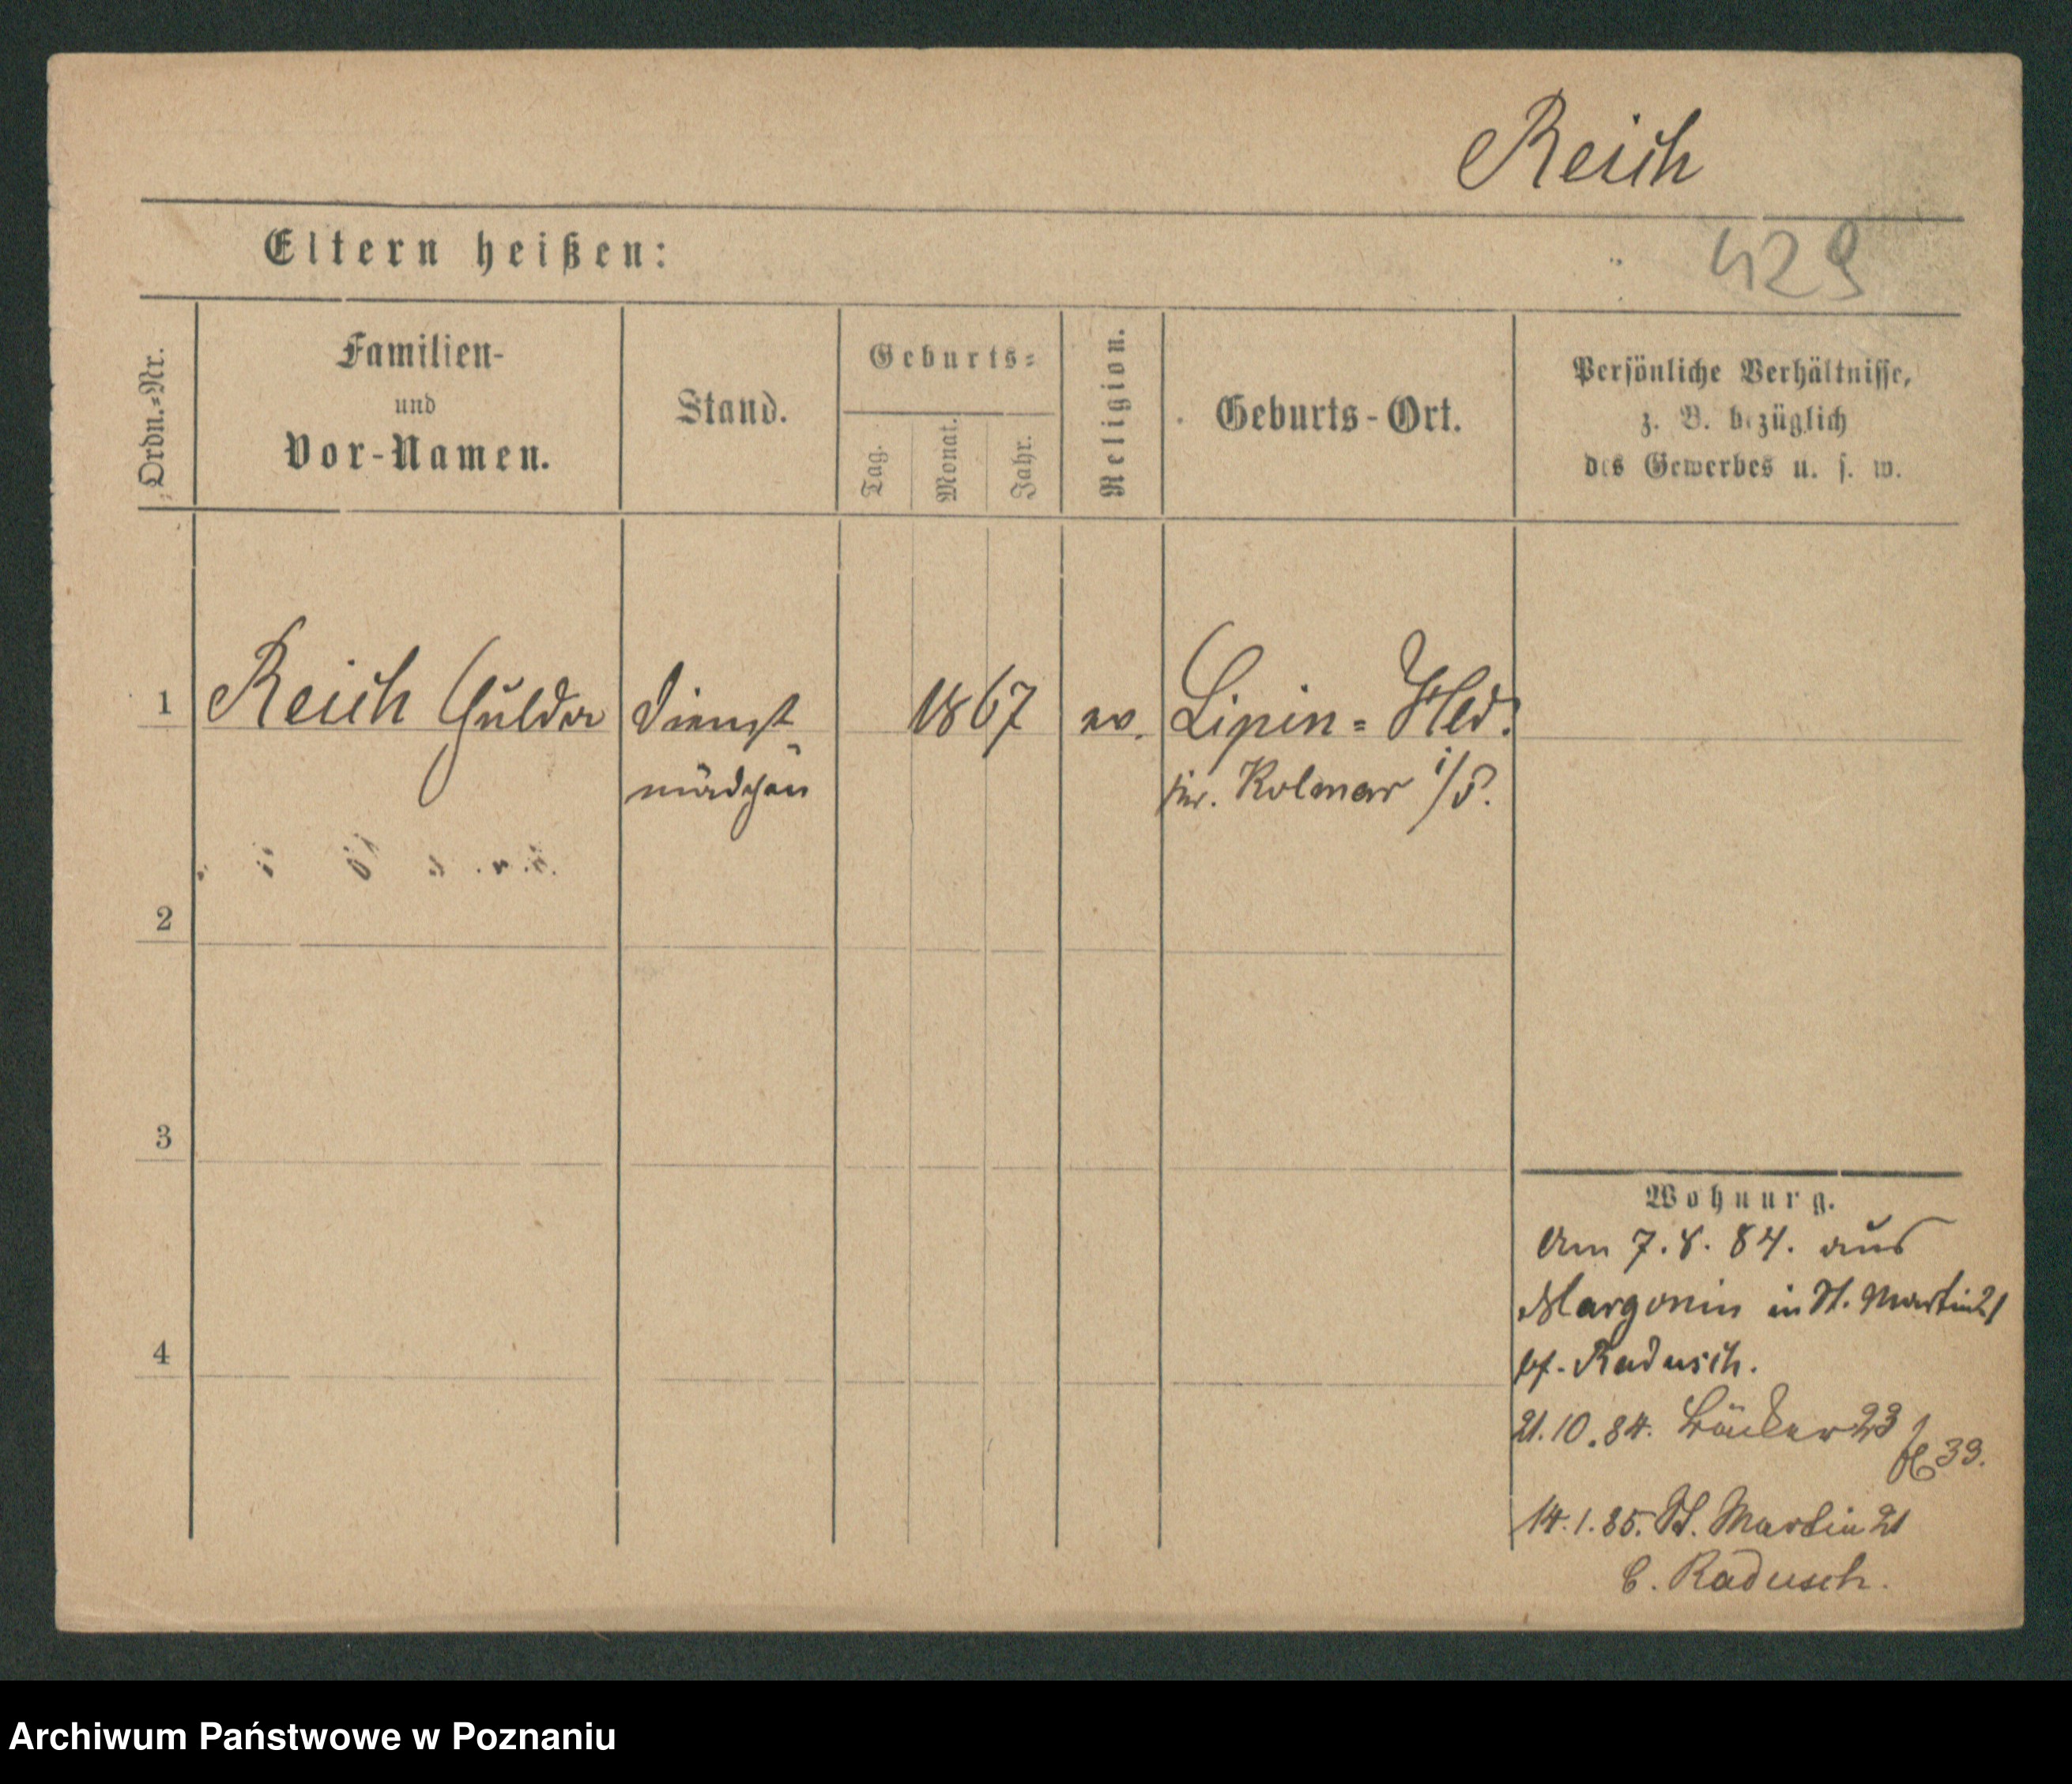 Reich
Eltern heißen:
429
Ordn.-Nr.
Familien-
und
Vor-Namen.
Stand.
Geburts-
Tag.
Monat.
Jahr.
Religion.
Geburts-Ort.
Persönliche Verhältnisse,
z. B. bezüglich
des Gewerbes u. s. w.
1 Reich Hulda Dienst 1867 ev. Lipin-Hld.
mädchen Kr. Kolmar i/P.
2
3
4
Wohnung.
Am 7.8.84. aus
Margonin in St. Martin 21
bf. Radusch.
21.10.84. Bäcker 23
33.
14.1.85. St. Martin 21
b. Radusch.
Archiwum Państwowe w Poznaniu